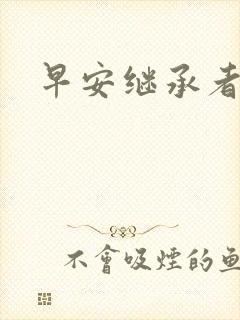 早安继承者
不會吸煙的鱼